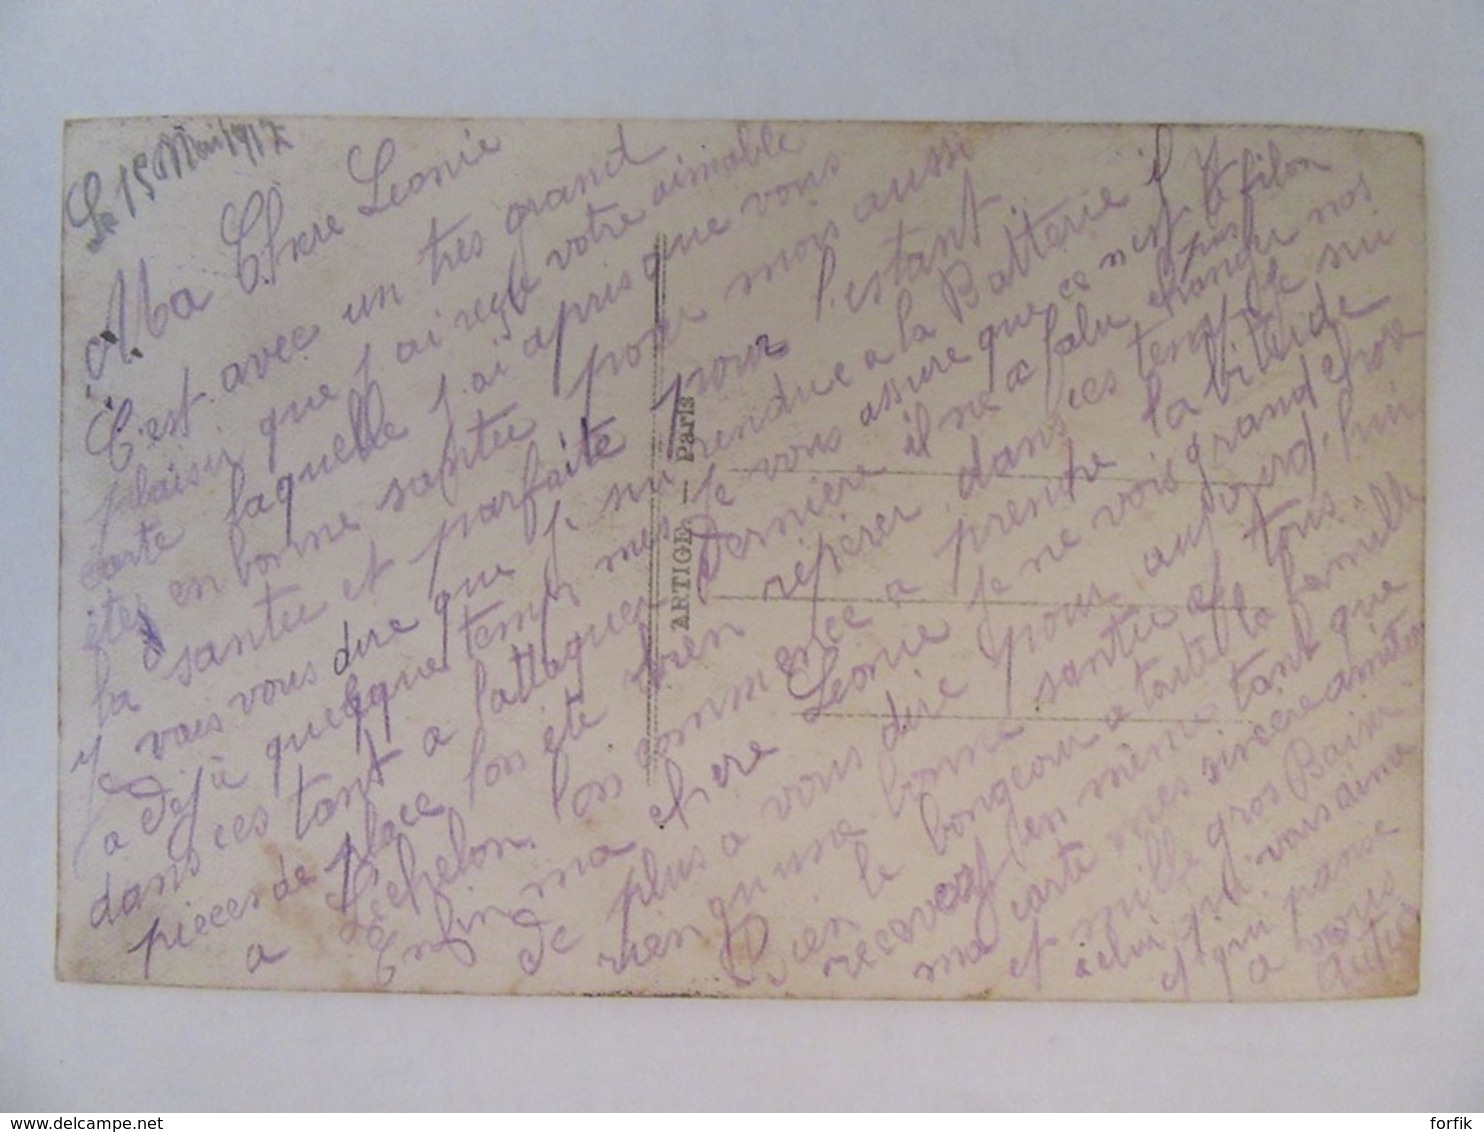 Le 15 Mai 1917
Ma Chere Leonie
C'est avec un tres grand
plaisir que j'ai reçue votre aimable
carte laquelle j'ai apris que vous
étes en bonne santée pour mois aussi
la santée et parfaite pour l'estant
Je vais vous dire que je sui rendue a la Batterie il y
a déjà quelque temps mes je vous assure que ce n'est pas le filon
dans ces tant a l'attaquer dernière il ne a falu changer nos
pieces de place lon été bien repérer dans ces temps je sui
a l'échelon on commence a prendre la bitude
Enfin ma chere Leonie je ne vois grand chose
de plus a vous dire pour aujourd'hui
rien qu'une bonne santée a tous
Bien le bongeour a toute la famille
recevez en même tant que
ma carte mes sincère amitiés
et mille gros Baiser
a celui qui vous aime
et qui panse
a vous
ARTIGE — Paris
forfik